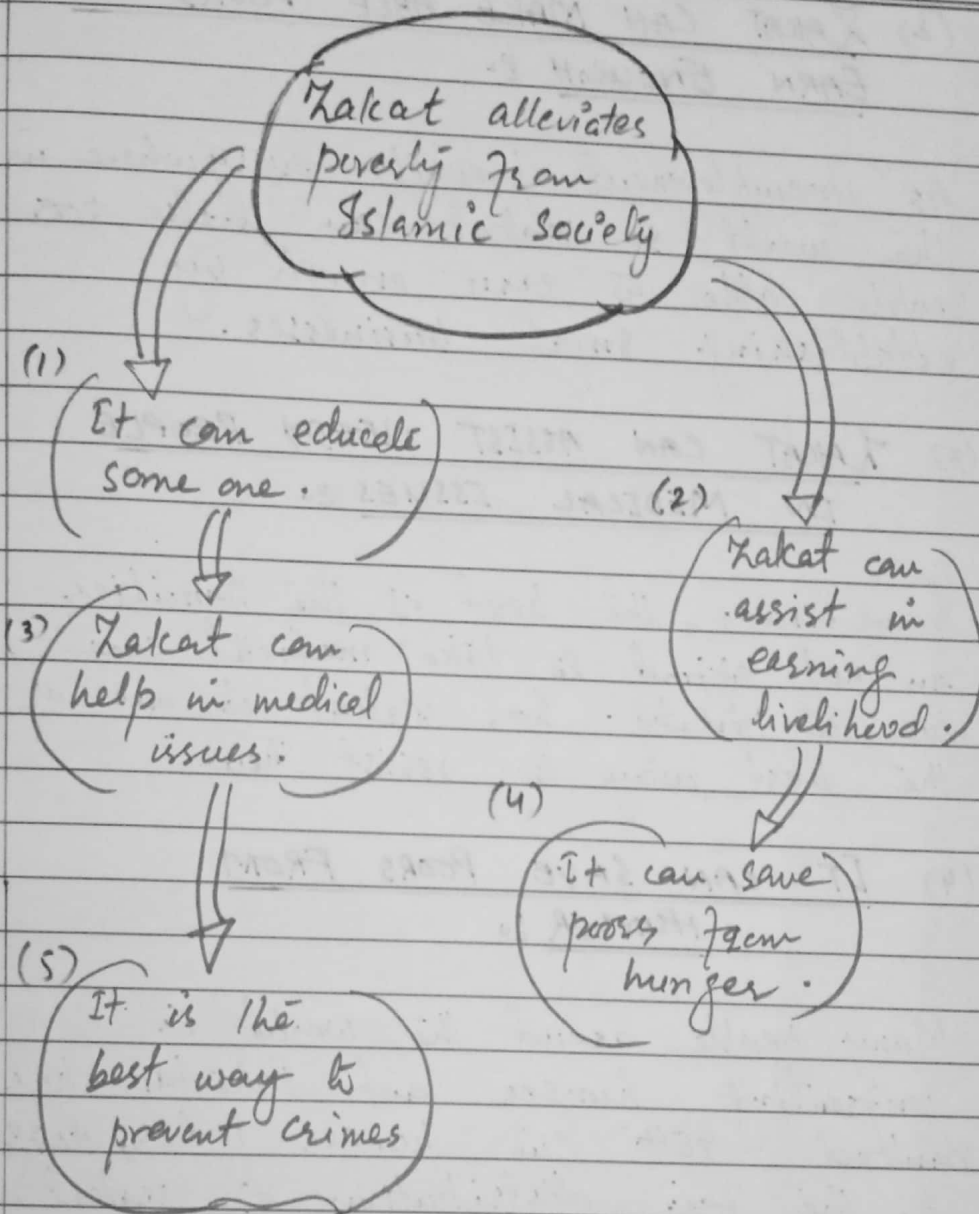 Zakat alleviates
poverty from
Islamic Society
(1)
It can educate
some one.
(2)
Zakat can
assist in
earning
livelihood.
(3)
Zakat can
help in medical
issues.
(4)
It can save
poors from
hunger.
(5)
It is the
best way to
prevent crimes